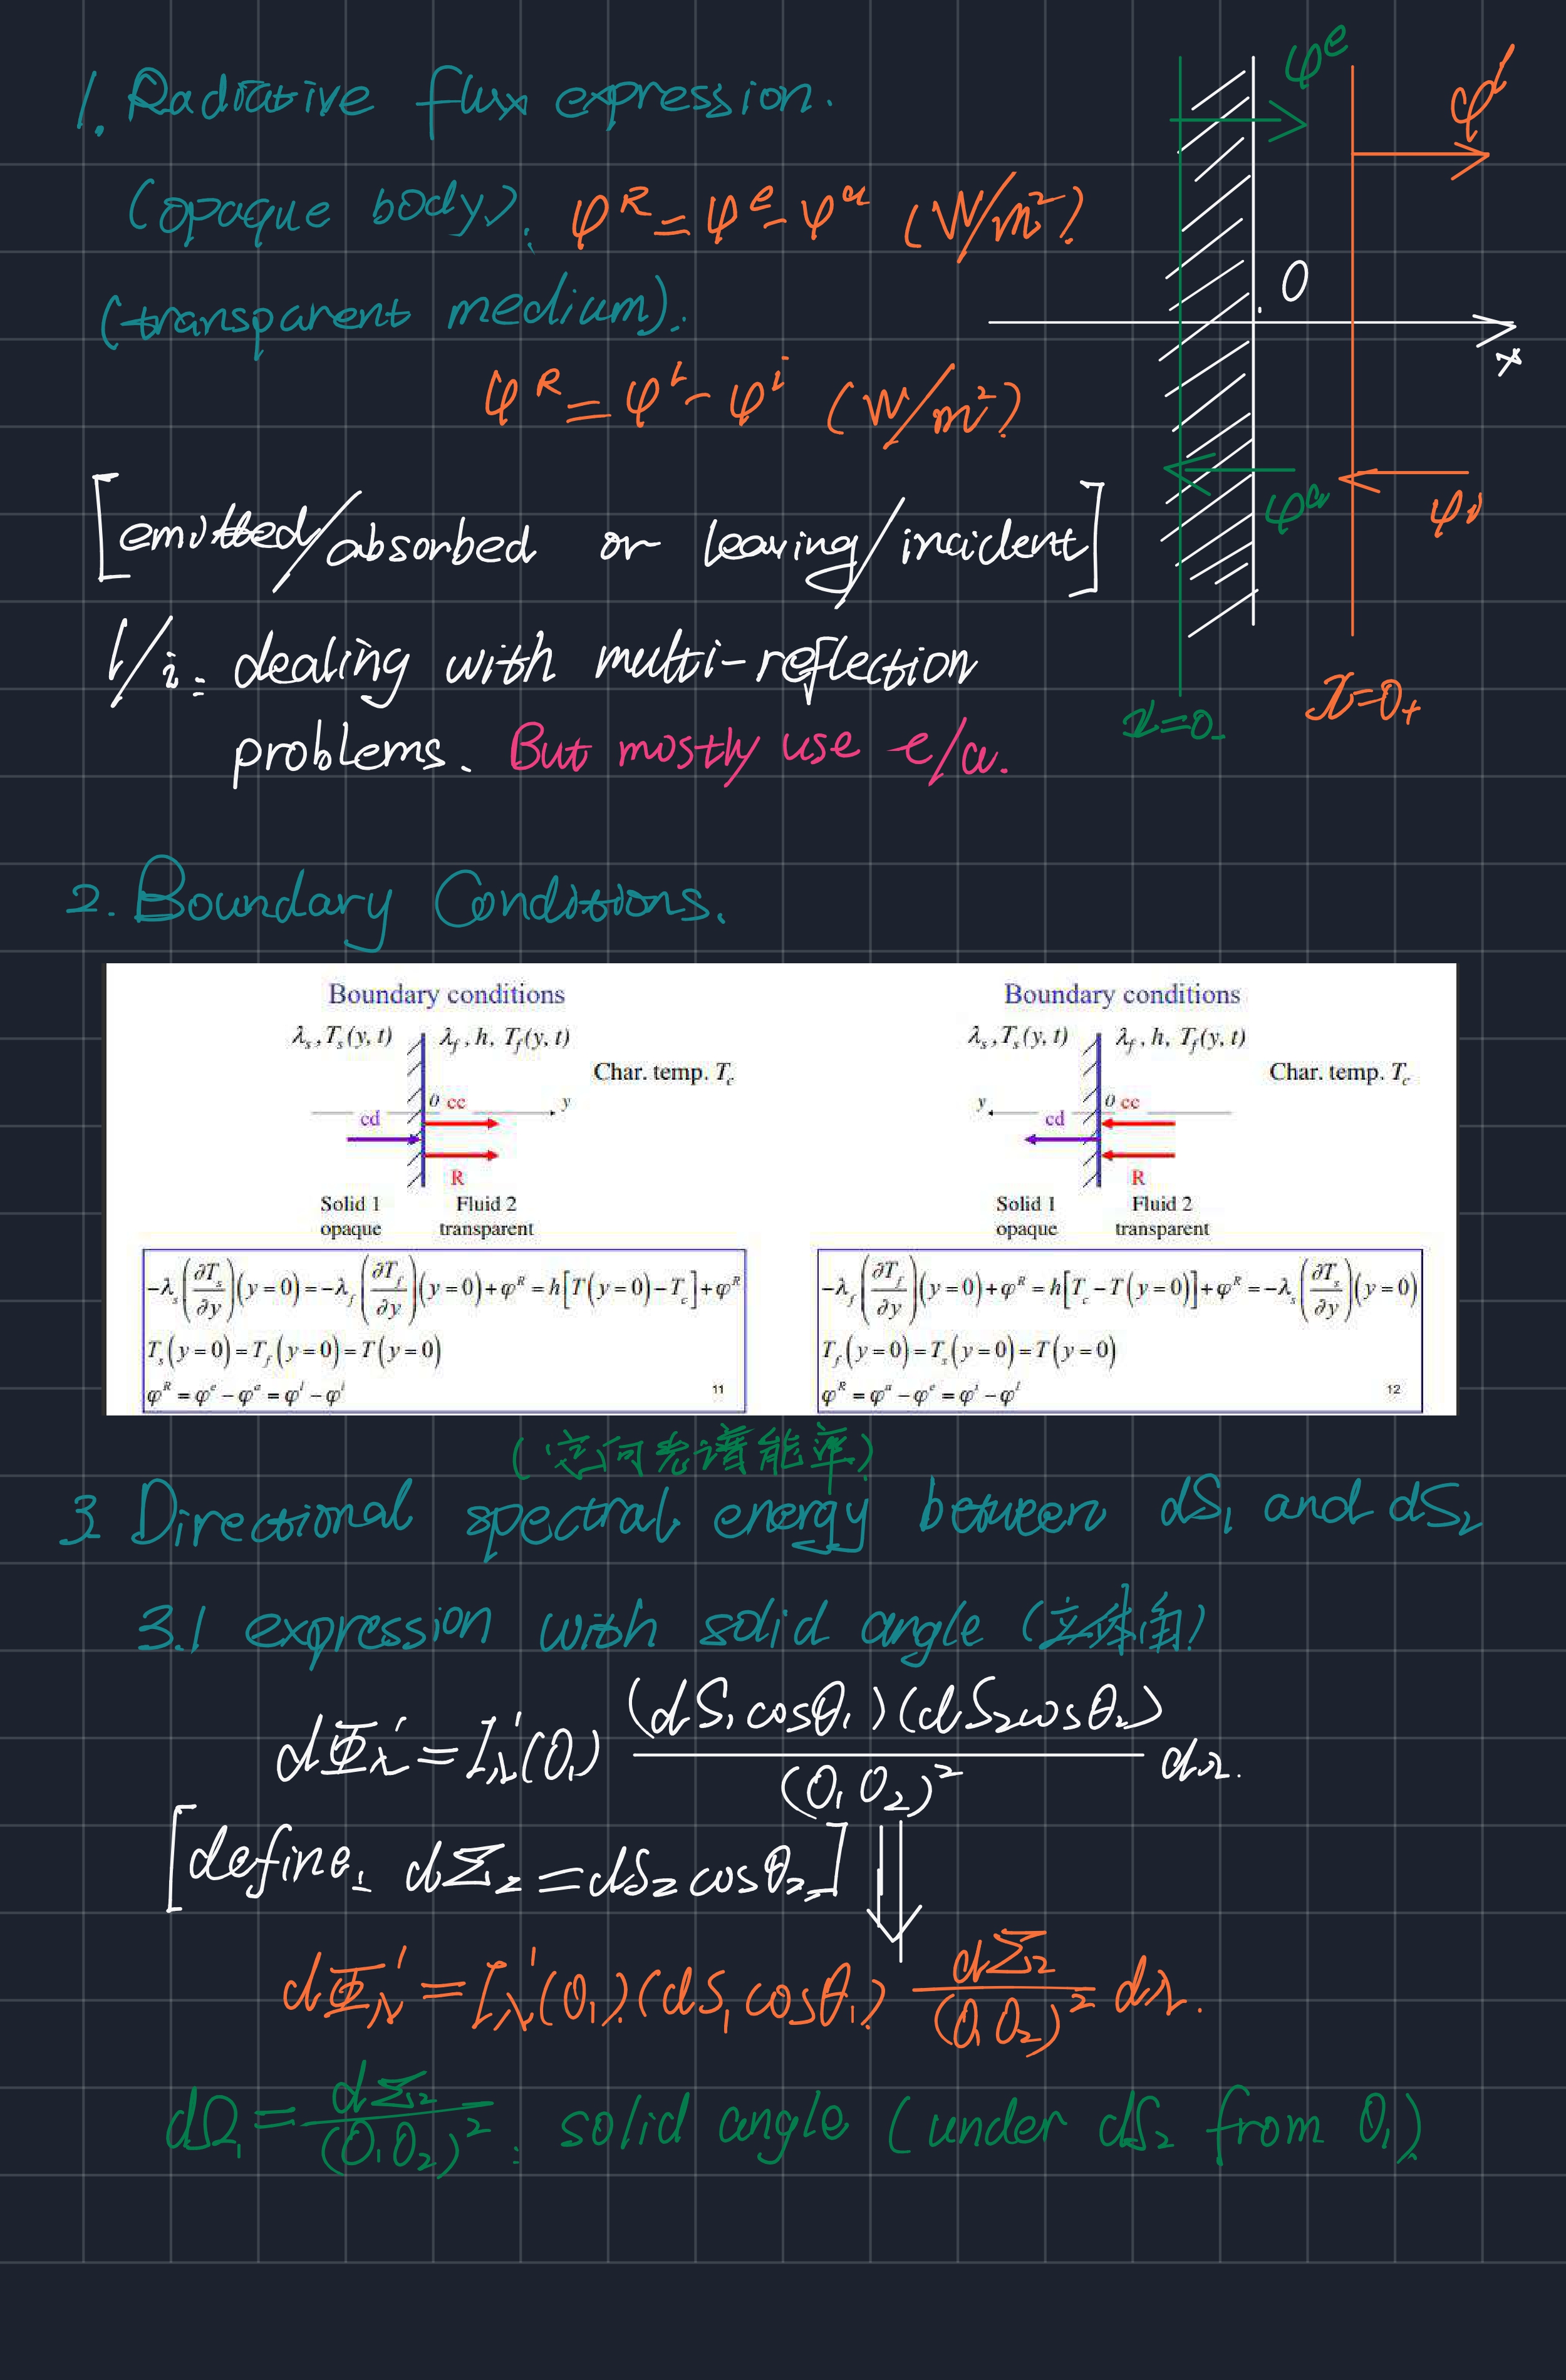 1. Radiative flux expression.
(opaque body): φ^R = φ^e - φ^a (W/m²)
(transparent medium):
φ^R = φ^l - φ^i (W/m²)
φ^e
φ^l
0
x
φ^a
φ^i
x=0-
x=0+
[emitted/absorbed or leaving/incident]
l/i: dealing with multi-reflection
problems. But mostly use e/a.
2. Boundary Conditions.
Boundary conditions
λs, Ts(y, t) λf, h, Tf(y, t)
Char. temp. Tc
0 cc y
cd
R
Solid 1 Fluid 2
opaque transparent
-λs(∂Ts/∂y)(y=0) = -λf(∂Tf/∂y)(y=0) + φ^R = h[T(y=0) - Tc] + φ^R
Ts(y=0) = Tf(y=0) = T(y=0)
φ^R = φ^e - φ^a = φ^l - φ^i
11
Boundary conditions
λs, Ts(y, t) λf, h, Tf(y, t)
Char. temp. Tc
y 0 cc
cd
R
Solid 1 Fluid 2
opaque transparent
-λf(∂Tf/∂y)(y=0) + φ^R = h[Tc - T(y=0)] + φ^R = -λs(∂Ts/∂y)(y=0)
Tf(y=0) = Ts(y=0) = T(y=0)
φ^R = φ^a - φ^e = φ^i - φ^l
12
(定向光谱能率)
3 Directional spectral energy between dS₁ and dS₂
3.1 expression with solid angle (立体角)
dΦλ' = Iλ'(O₁) (dS₁cosθ₁)(dS₂cosθ₂)/(O₁O₂)² dλ.
[define: dΣ₂ = dS₂cosθ₂]
dΦλ' = Iλ'(O₁)(dS₁cosθ₁) dΣ₂/(O₁O₂)² dλ.
dΩ₁ = dΣ₂/(O₁O₂)²: solid angle (under dS₂ from O₁)